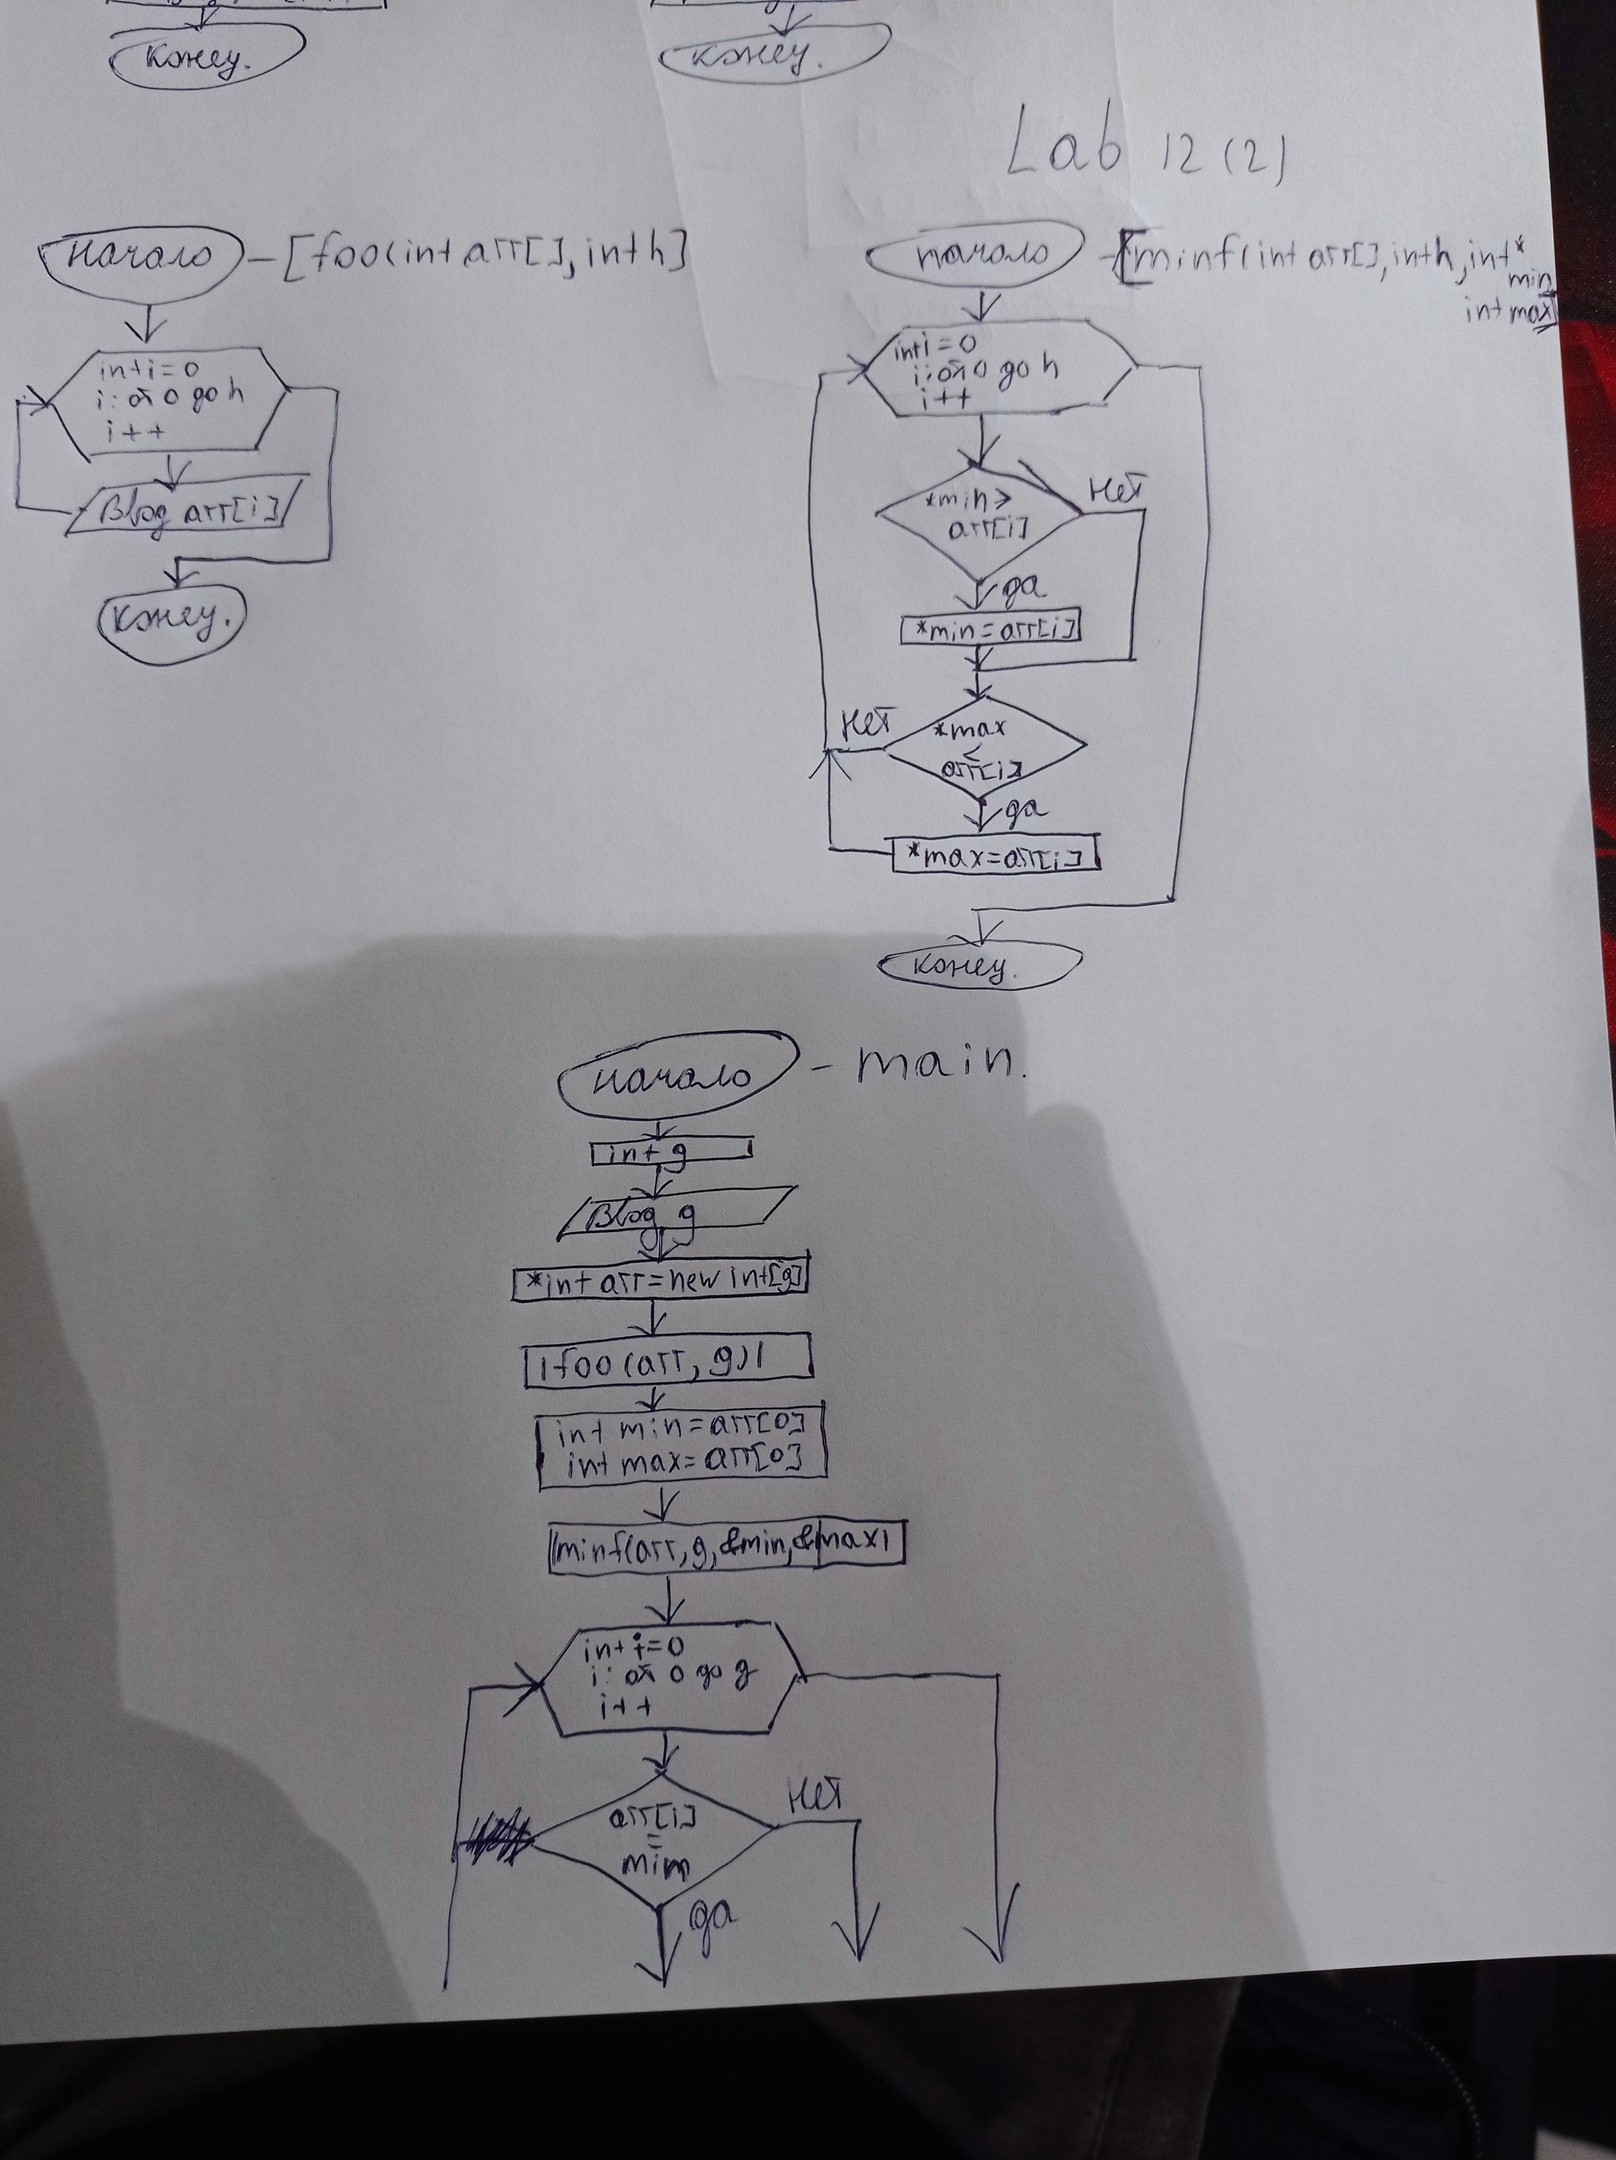 конец.
конец.
Lab 12(2)
начало - [foo(int arr[], int h]
int i=0
i: от 0 до h
i++
Ввод arr[i]
конец.
начало - [minf(int arr[], int h, int*
min
int max]
int i=0
i: от 0 до h
i++
*min>
arr[i]
нет
да
*min=arr[i]
нет
*max
<
arr[i]
да
*max=arr[i]
конец.
начало - main.
int g
Ввод g
*int arr=new int[g]
|foo(arr, g)|
int min=arr[0]
int max=arr[0]
|minf(arr, g, &min, &max|
int i=0
i: от 0 до g
i++
arr[i]
=
mim
нет
да